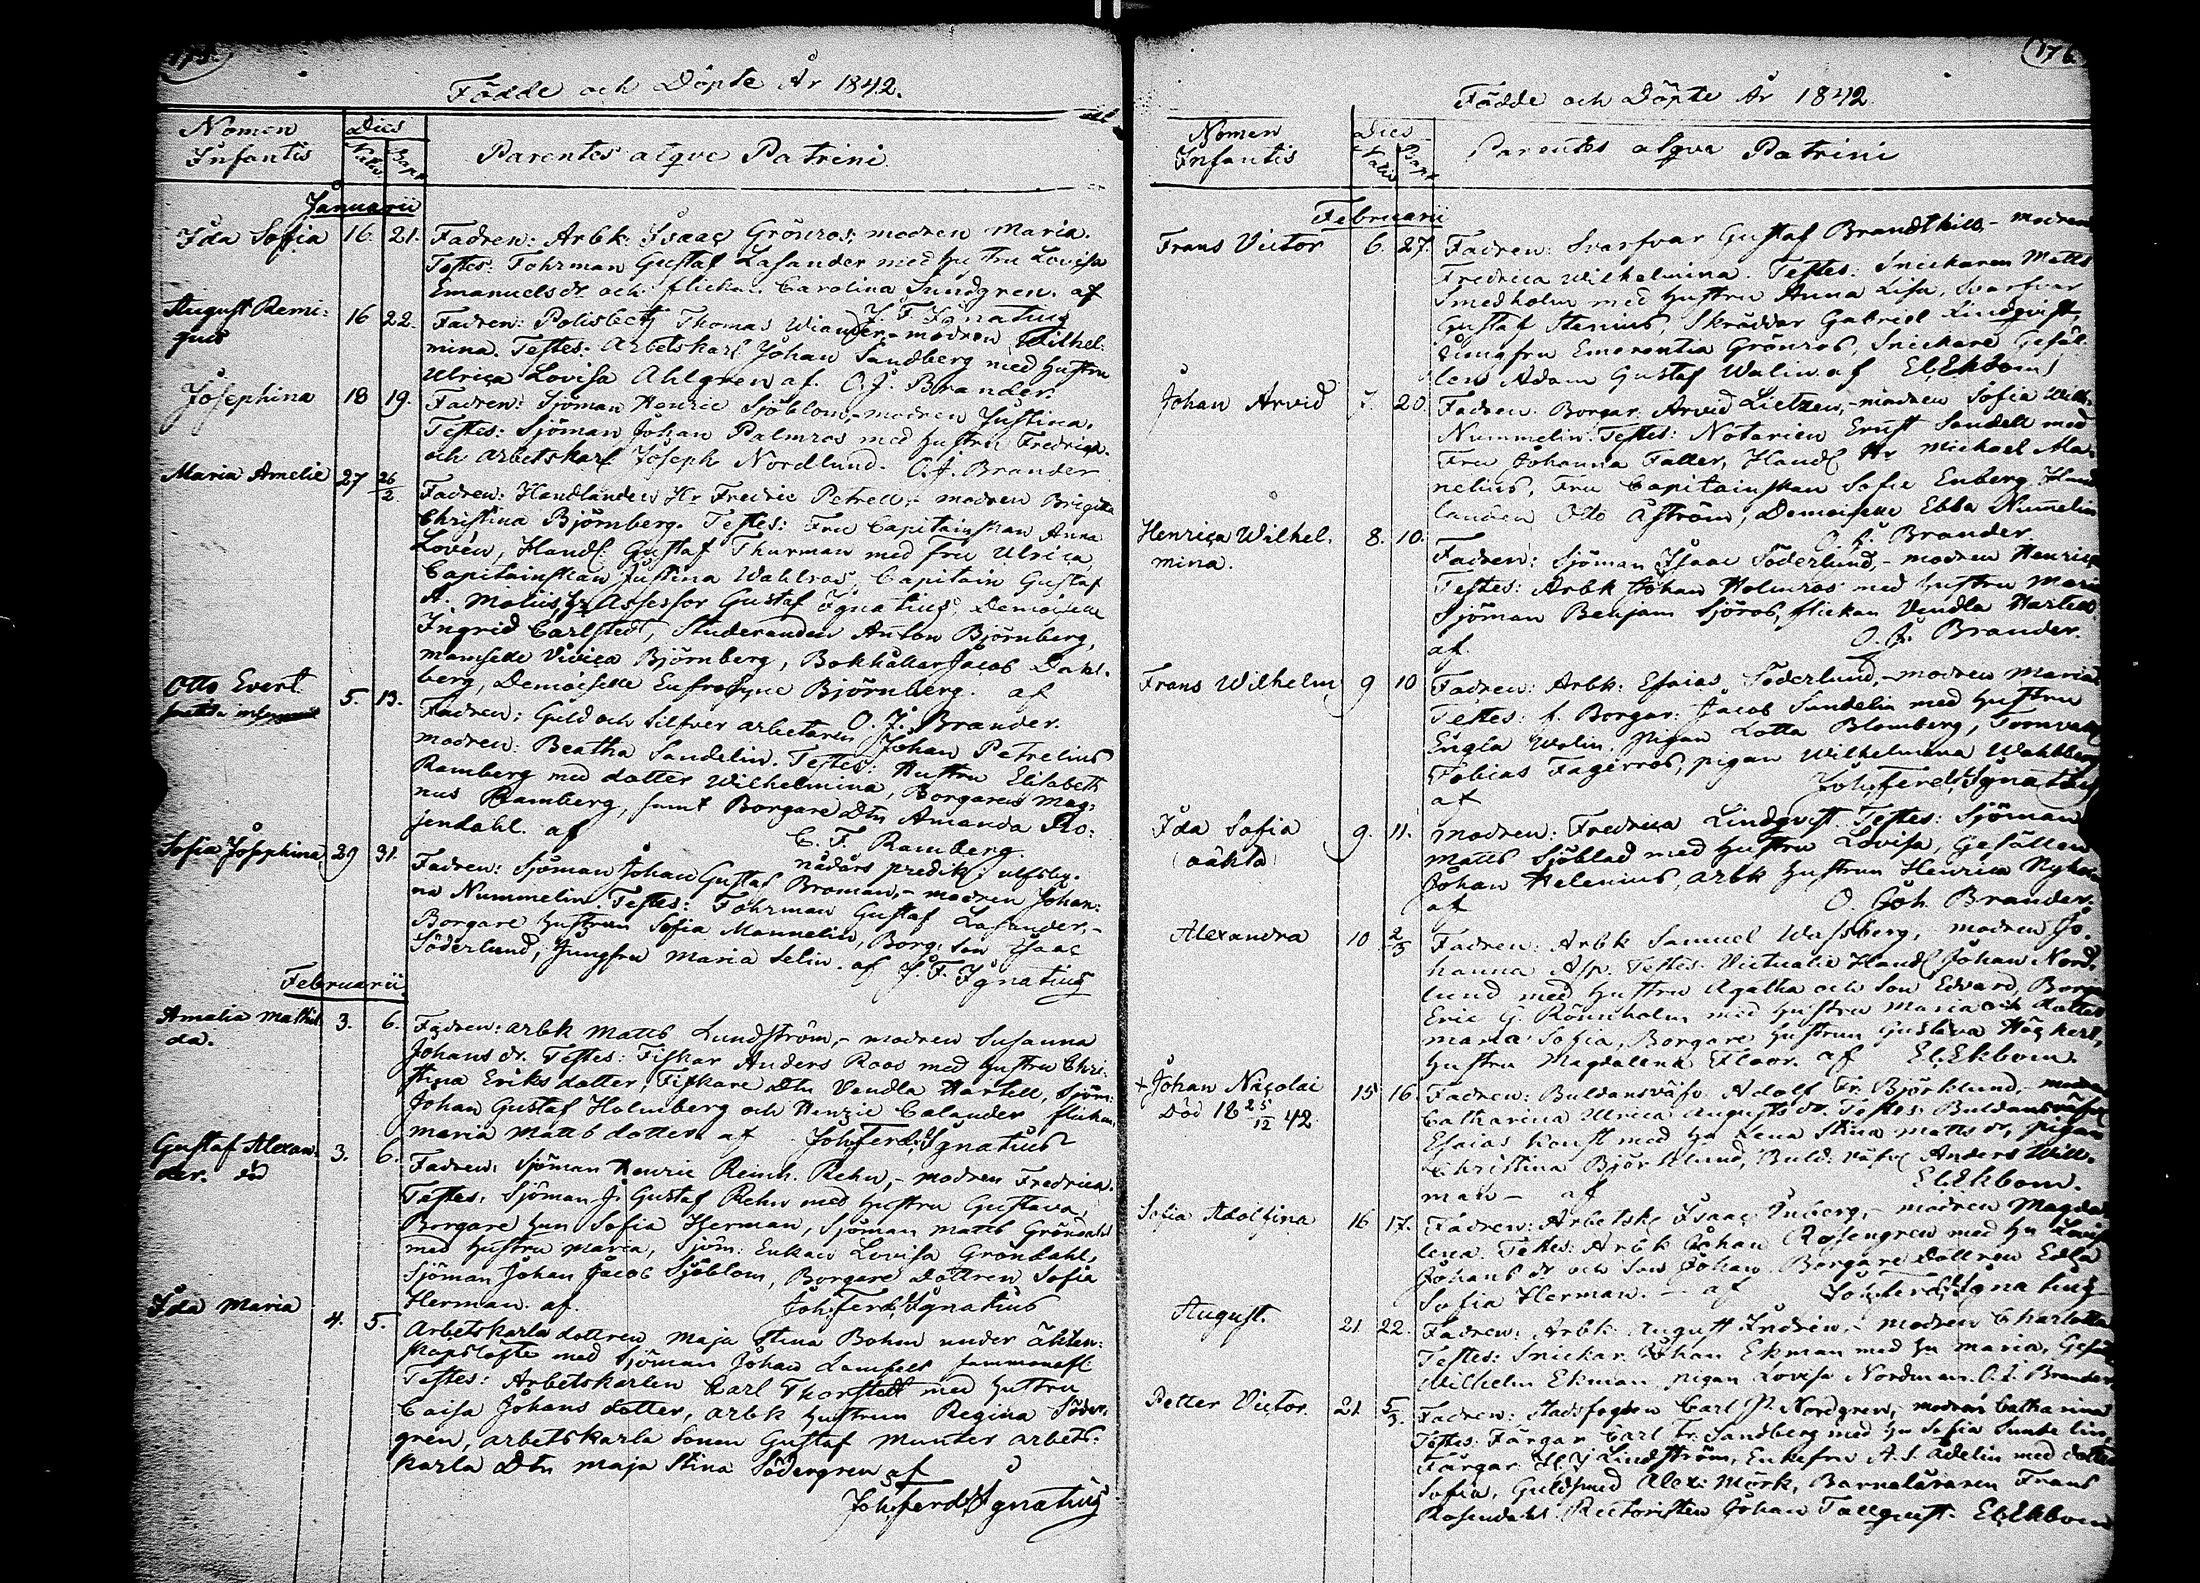 175.
Födde och Döpte År 1842.
Nomen Infantis
Dies
Nativ. Bapt.
Parentes atqve Patrini
Januarii
Ida Sofia 16. 21. Fadren: Arbk: Isaac Grönros, modren Maria.
Testes: Fohrman Gustaf Lasander med hustru Lovisa
Emanuels dr och flickan Carolina Sundgren. af
J. F. Ignatius
August Remi- 16 22. Fadren: Polisbetj Thomas Wiander, - modren Wilhel-
gius
mina. Testes: Arbetskarl Johan Sandberg med Hustru
Ulrica Lovisa Ahlgren af. O. J. Brander.
Josephina 18 19. Fadren: Sjöman Henric Sjöblom, - modren Justina.
Testes: Sjöman Johan Palmros med hustru Fredrica.
och arbetskarl Joseph Nordlund. O. J. Brander
Maria Amelie 27 26/2. Fadren: Handlanden Hr Fredric Petrell, - modren Brigitta
Christina Björnberg. Testes: Fru Capitainskan Anna
Lovén, Handl: Gustaf Thurman med fru Ulrica,
Capitainskan Justina Wahlros, Capitain Gustaf
A. Moliis, Hr Assessor Gustaf Ignatius, Demoiselle
Ingrid Carlstedt, Studeranden Anton Björnberg,
mamselle Viviça Björnberg, Bokhållar Jacob Dahl-
berg, Demoiselle Eufrosyne Björnberg. af
O. J. Brander.
Otto Evert 5. 13. Fadren: Guld och Silfver arbetaren Johan Petrelius
modren: Beatha Sandelin. Testes: Hustru Elisabeth
Ramberg med dotter Wilhelmina, Borgaren Mag-
nus Ramberg, samt Borgare Dtn Amanda Ro-
sendahl. af C. F. Ramberg.
nådårs predik: Ulfsby.
Sofia Josephina 29 31. Fadren: Sjöman Johan Gustaf Broman, - modren Johan-
na Nummelin. Testes: Fohrman Gustaf Lasander, -
Borgare hustrun Sofia Mannelin, Borg: son Isaac
Söderlund, Jungfru Maria Selin. af J. F. Ignatius
Februarii
Amalia Mathil- 3. 6. Fadren: arbk Matts Lundström, - modren Susanna
da.
Johans dr. Testes: Fiskar Anders Roos med hustru Chri-
stina Eriks dotter, Fiskare Dtn Vendla Hartell, Sjöm:
Johan Gustaf Holmberg och Henric Calander flickan
Maria Matts dotter af Joh: Ferd: Ignatius
Gustaf Alexan- 3. 6. Fadren: Sjöman Henric Reinh. Rehn, - modren Fredrica.
der. död
Testes: Sjöman J. Gustaf Rehn med hustru Gustava,
Borgare hun Sofia Herman, Sjöman Matts Gröndahl
med hustru Maria, Sjöm: Enkan Lovisa Gröndahl,
Sjöman Johan Jacob Sjöblom, Borgare Dottren Sofia
Herman. af. Joh: Ferd: Ignatius
Ida Maria 4. 5. Arbetskarla dottren Maja Stina Bohm under äkten-
skapslöfte med Sjöman Johan
Testes: Arbetskarlen Karl Thorstedt med hustru
Caisa Johans dotter, arbk hustrun Regina Söder-
gren, arbetskarla Sonen Gustaf Munter arbets-
karla Dtn Maja Stina Södergren af
Joh: Ferd: Ignatius
176
Födde och Döpte År 1842
Nomen Infantis
Dies
Nativ Bapt
Parentes atqve Patrini
Februarii
Frans Victor 6. 27. Fadren: Svarfvar Gustaf Brandthill - modren
Fredrica Wilhelmina. Testes: Snickaren Matts
Smedholm med hustru Anna Lisa, Svarfvar
Gustaf Stenius, Skräddar Gabriel Lindqvist,
Jungfru Emerentia Grönros, Snickare Gesäl-
len Adam Gustaf Walin af El. Ekbom
Johan Arvid 7. 20. Fadren: Borgar. Arvid Lietzen, - modren Sofia Wilh.
Nummelin. Testes: Notarien Ernst Sandell med
Fru Johanna Faller, Handl Hr Michael Ma-
nelius, Fru Capitainskan Sofie Enberg Hand
landen Otto Åström, Demoiselle Ebba Nummelin
O. J. Brander
Henrica Wilhel- 8. 10. Fadren: Sjöman Isaac Söderlund, - modren Henrica
mina.
Testes: Arbk Johan Holmros med hustru Maria
Sjöman Benjam Sjöros, flickan Vendla Hartell
af. O. J. Brander.
Frans Wilhelm 9 10 Fadren: Arbk: Esaias Söderlund, - modren Maria
Testes: f. Borgar: Jacob Sundelin med hustru
Engla Walin, pigan Lotta Blomberg, Tornvakt
Tobias Fagerros, pigan Wilhelmina Wahlberg
af Joh: Ferd: Ignatius
Ida Sofia 9. 11. Modren: Fredrica Lindqvist Testes: Sjöman
(oäkta)
Matts Sjöblad med hustru Lovisa, Gesällen
Johan Helenius, arbk hustrun Henrica
af O. Joh. Brander.
Alexandra 10 2/3 Fadren: Arbk Samuel Wassberg, modren Jo-
hanna Asp. Testes. Victualie Handl Johan Nord-
lund med hustru Agatha och son Edvard, Borgar
Eric G. Rönnholm med hustru Maria och dotter
Maria Sofia, Borgare hustrun Gustava Högkert,
hustru Magdalena Floor. af El. Ekbom.
+ Johan Nicolai 15 16. Fadren: Buldansväfv. Adolf Fr. Björklund, - modren
Död 18 25/12 42.
Catharina Ulrica Augusts dr. Testes: Buldansväfv
Esaias Konst med hu Lena Stina Matts dr, pigan
Christina Björklund, Buld: väfv Anders Will-
man - af El. Ekbom.
Sofia Adolfina 16 17. Fadren: Arbetsk Isaac Enberg, - modren Magda-
lena. Testes: Arbk Johan Rosengren med hu Lovisa
Johans dr och son Johan. Borgare Dottren Edla
Sofia Herman. - af Joh: Ferd: Ignatius
August. 21 22. Fadren: Arbk. August Indrén, - modren Charlotta
Testes: Snickar. Johan Ekman med hu Maria, Gesäll
Wilhelm Ekman, pigan Lovisa Nordman. O. J. Brander.
Petter Victor. 21 5/3. Fadren: Stadsfogden Carl P. Nordgren, modren Catharina
Testes: Färgar Carl Fr. Sandberg med hu Sofia Sundelin,
Färgar H. J. Lindström, Enkefru A. S. Ådelin med dotter
Sofia, Guldsmed Alex: Mörk, Barnaläraren Frans
Rosendahl. Rectoristen Johan Tallqvist. El. Ekbom